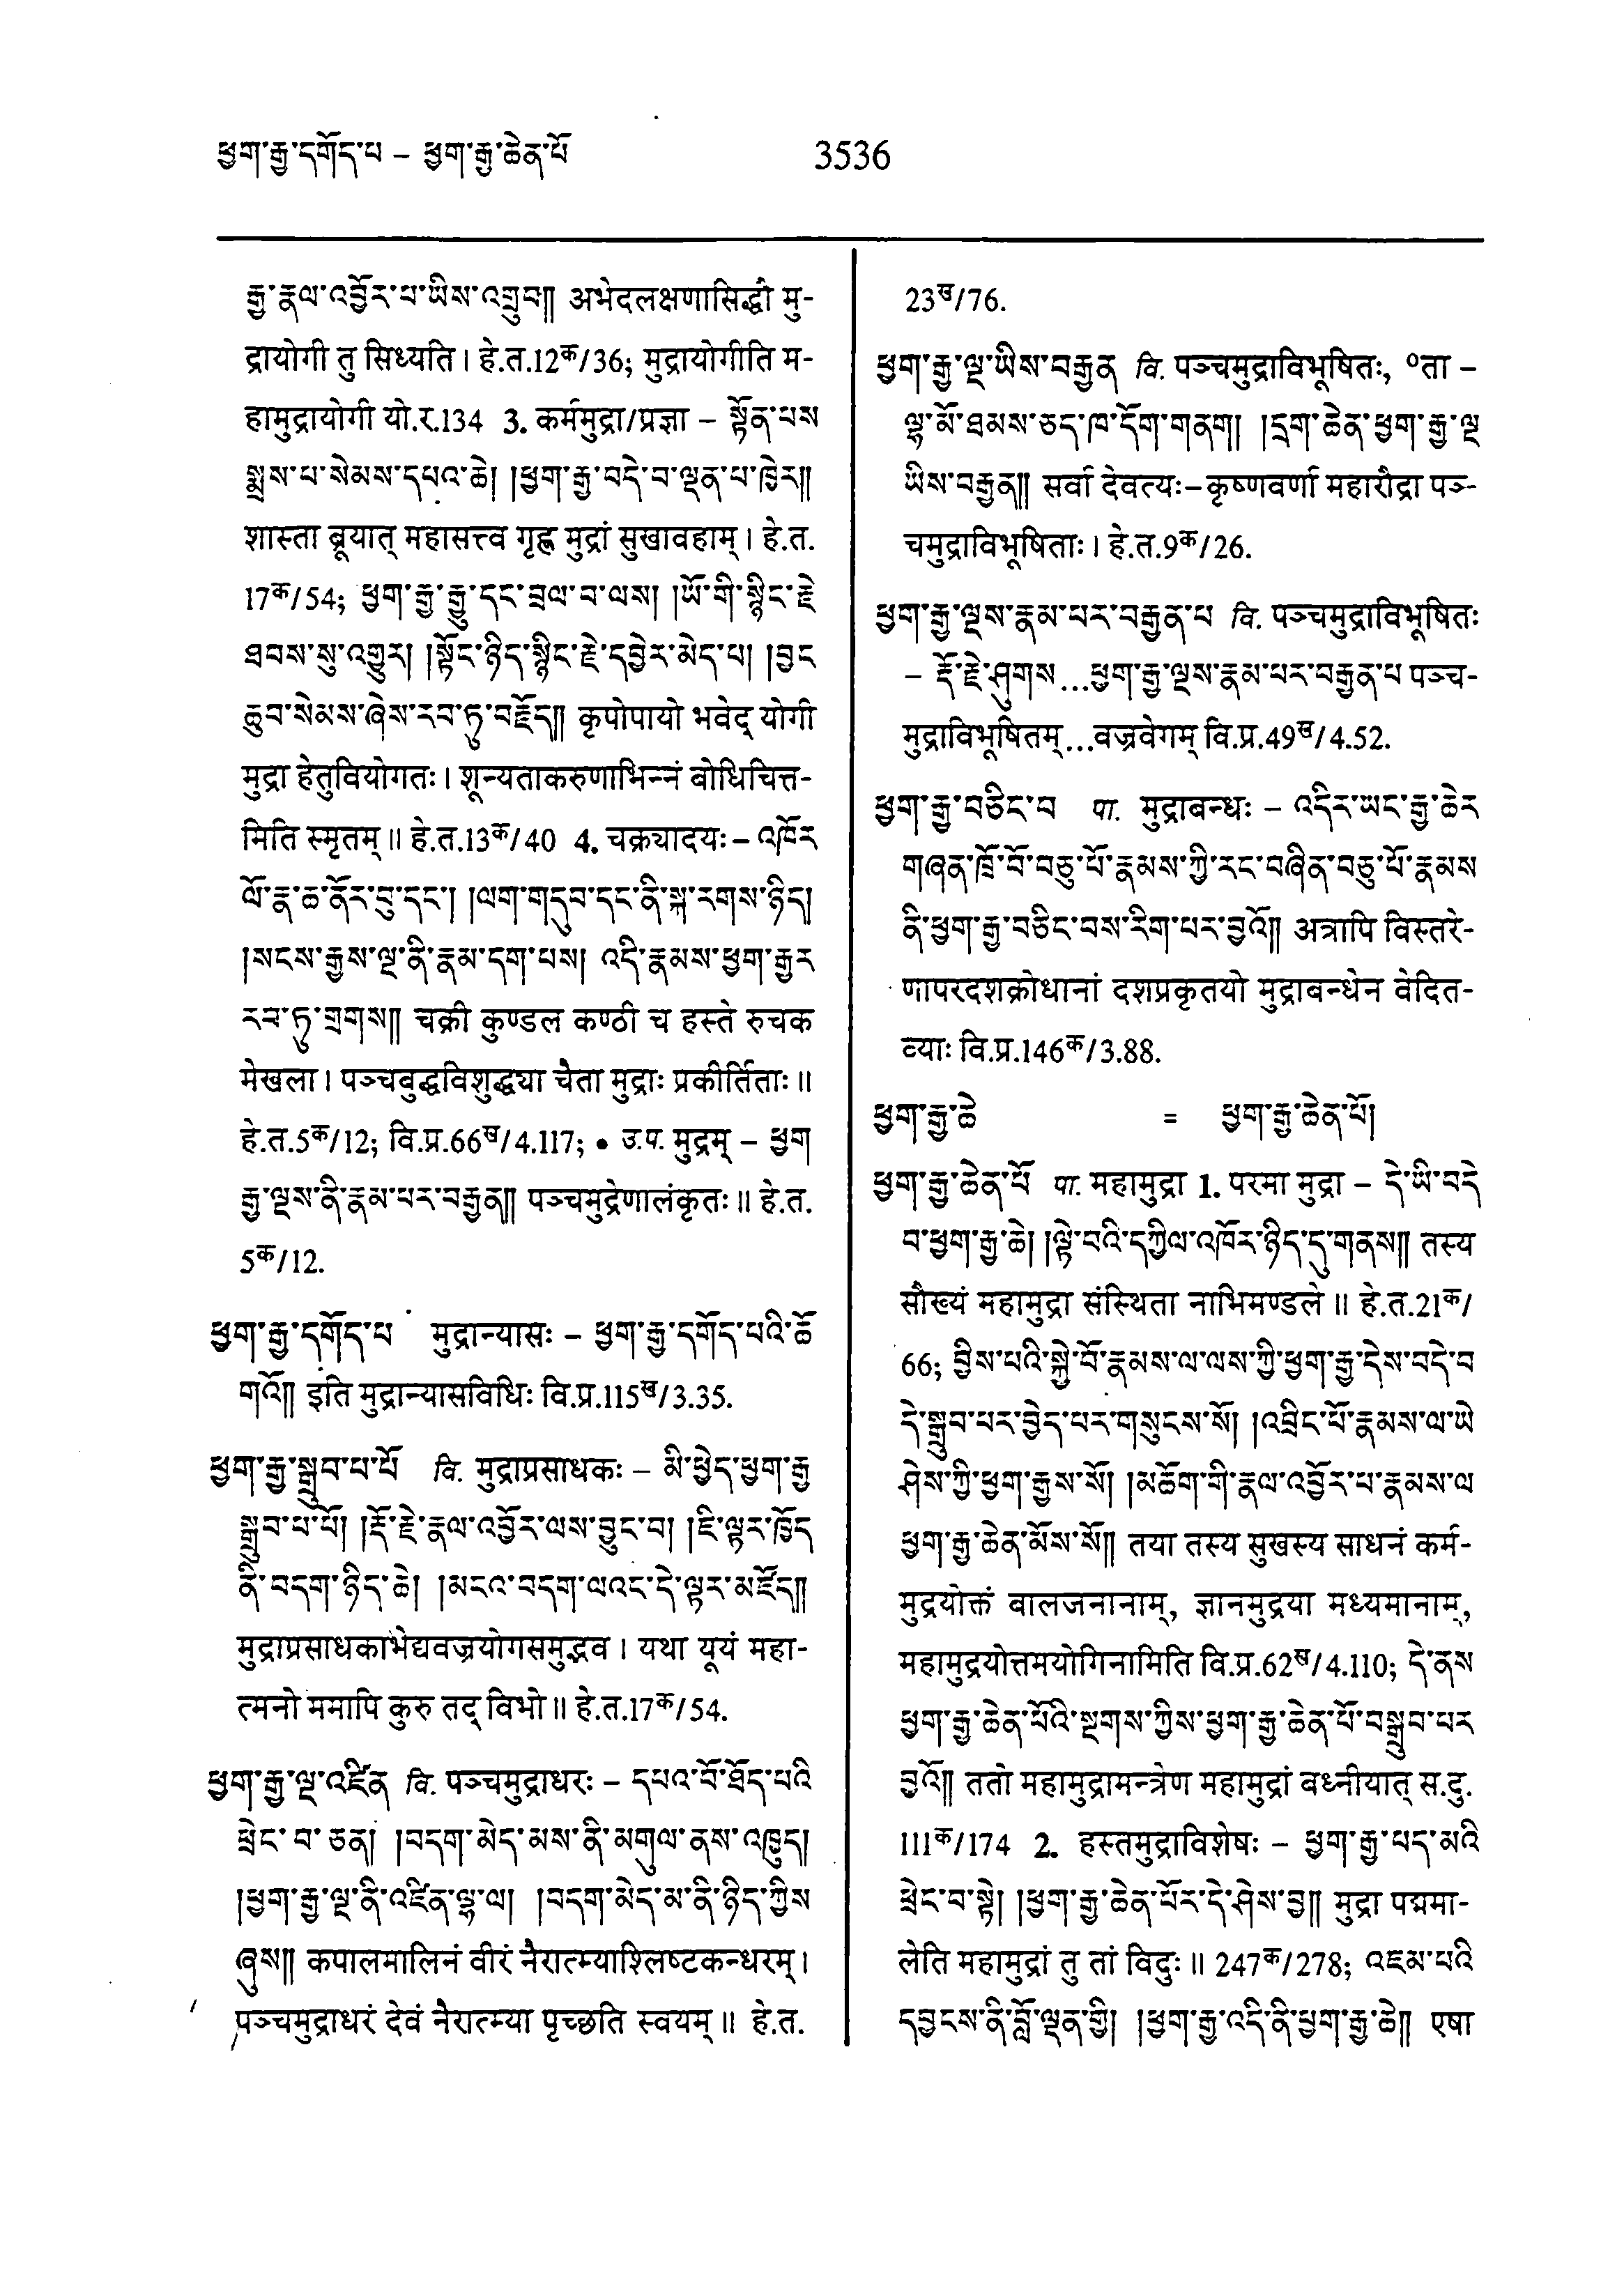 ཕྱག་རྒྱ་དགོད་པ – ཕྱག་རྒྱ་ཆེན་པོ
3536
རྒྱ་རྣལ་འབྱོར་པ་ཡིས་འགྲུབ།། अभेदलक्षणासिद्धौ मु-
द्रायोगी तु सिध्यति। हे.त.12क/36; मुद्रायोगीति म-
हामुद्रायोगी यो.र.134 3. कर्ममुद्रा/प्रज्ञा – སྟོན་པས
སྨྲས་པ་སེམས་དཔའ་ཆེ། །ཕྱག་རྒྱ་བདེ་བ་ལྡན་པ་ཁྱེར།།
शास्ता ब्रूयात् महासत्त्व गृह्ण मुद्रां सुखावहाम्। हे.त.
17क/54; ཕྱག་རྒྱ་རྒྱུ་དང་བྲལ་བ་ལས། །ཡོ་གི་སྙིང་རྗེ
ཐབས་སུ་འགྱུར། །སྟོང་ཉིད་སྙིང་རྗེ་དབྱེར་མེད་པ། །བྱང
ཆུབ་སེམས་ཞེས་རབ་ཏུ་བརྗོད།། कृपोपायो भवेद् योगी
मुद्रा हेतुवियोगतः। शून्यताकरुणाभिन्नं बोधिचित्त-
मिति स्मृतम्॥ हे.त.13क/40 4. चक्र्यादयः – འཁོར
ལོ་རྣ་ཆ་ནོར་བུ་དང་། །ལག་གདུབ་དང་ནི་སྐ་རགས་ཉིད།
།སངས་རྒྱས་ལྔ་ནི་རྣམ་དག་པས། འདི་རྣམས་ཕྱག་རྒྱར
རབ་ཏུ་གྲགས།། चक्री कुण्डल कण्ठी च हस्ते रुचक
मेखला। पञ्चबुद्धविशुद्ध्या चैता मुद्राः प्रकीर्तिताः॥
हे.त.5क/12; वि.प्र.66ख/4.117; • उ.प. मुद्रम् – ཕྱག
རྒྱ་ལྔས་ནི་རྣམ་པར་བརྒྱན།། पञ्चमुद्रेणालंकृतः॥ हे.त.
5क/12.
ཕྱག་རྒྱ་དགོད་པ मुद्रान्यासः – ཕྱག་རྒྱ་དགོད་པའི་ཆོ
གའོ།། इति मुद्रान्यासविधिः वि.प्र.115ख/3.35.
ཕྱག་རྒྱ་སྒྲུབ་པ་པོ वि. मुद्राप्रसाधकः – མི་ཕྱེད་ཕྱག་རྒྱ
སྒྲུབ་པ་པོ། །རྡོ་རྗེ་རྣལ་འབྱོར་ལས་བྱུང་བ། །ཇི་ལྟར་ཁྱོད
ནི་བདག་ཉིད་ཆེ། །མངའ་བདག་ལའང་དེ་ལྟར་མཛོད།།
मुद्राप्रसाधकाभेद्यवज्रयोगसमुद्भव। यथा यूयं महा-
त्मनो ममापि कुरु तद् विभो॥ हे.त.17क/54.
ཕྱག་རྒྱ་ལྔ་འཛིན वि. पञ्चमुद्राधरः – དཔའ་བོ་ཐོད་པའི
ཕྲེང་བ་ཅན། །བདག་མེད་མས་ནི་མགུལ་ནས་འཁྱུད།
།ཕྱག་རྒྱ་ལྔ་ནི་འཛིན་ལྷ་ལ། །བདག་མེད་མ་ནི་ཉིད་ཀྱིས
ཞུས།། कपालमालिनं वीरं नैरात्म्याश्लिष्टकन्धरम्।
पञ्चमुद्राधरं देवं नैरात्म्या पृच्छति स्वयम्॥ हे.त.
23ख/76.
ཕྱག་རྒྱ་ལྔ་ཡིས་བརྒྱན वि. पञ्चमुद्राविभूषितः, ०ता –
ལྷ་མོ་ཐམས་ཅད་ཁ་དོག་གནག། །དྲག་ཆེན་ཕྱག་རྒྱ་ལྔ
ཡིས་བརྒྱན།། सर्वा देवत्यः–कृष्णवर्णा महारौद्रा पञ्-
चमुद्राविभूषिताः। हे.त.9क/26.
ཕྱག་རྒྱ་ལྔས་རྣམ་པར་བརྒྱན་པ वि. पञ्चमुद्राविभूषितः
– རྡོ་རྗེ་ཤུགས...ཕྱག་རྒྱ་ལྔས་རྣམ་པར་བརྒྱན་པ पञ्च-
मुद्राविभूषितम्...वज्रवेगम् वि.प्र.49ख/4.52.
ཕྱག་རྒྱ་བཅིང་བ पा. मुद्राबन्धः – འདིར་ཡང་རྒྱ་ཆེར
གཞན་ཁྲོ་བོ་བཅུ་པོ་རྣམས་ཀྱི་རང་བཞིན་བཅུ་པོ་རྣམས
ནི་ཕྱག་རྒྱ་བཅིང་བས་རིག་པར་བྱའོ།། अत्रापि विस्तरे-
णापरदशक्रोधानां दशप्रकृतयो मुद्राबन्धेन वेदित-
व्याः वि.प्र.146क/3.88.
ཕྱག་རྒྱ་ཆེ = ཕྱག་རྒྱ་ཆེན་པོ།
ཕྱག་རྒྱ་ཆེན་པོ पा. महामुद्रा 1. परमा मुद्रा – དེ་ཡི་བདེ
བ་ཕྱག་རྒྱ་ཆེ། །ལྟེ་བའི་དཀྱིལ་འཁོར་ཉིད་དུ་གནས།། तस्य
सौख्यं महामुद्रा संस्थिता नाभिमण्डले॥ हे.त.21क/
66; བྱིས་པའི་སྐྱེ་བོ་རྣམས་ལ་ལས་ཀྱི་ཕྱག་རྒྱ་དེས་བདེ་བ
དེ་སྒྲུབ་པར་བྱེད་པར་གསུངས་སོ། །འབྲིང་པོ་རྣམས་ལ་ཡེ
ཤེས་ཀྱི་ཕྱག་རྒྱས་སོ། །མཆོག་གི་རྣལ་འབྱོར་པ་རྣམས་ལ
ཕྱག་རྒྱ་ཆེན་མོས་སོ།། तया तस्य सुखस्य साधनं कर्म-
मुद्रयोक्तं बालजनानाम्, ज्ञानमुद्रया मध्यमानाम्,
महामुद्रयोत्तमयोगिनामिति वि.प्र.62ख/4.110; དེ་ནས
ཕྱག་རྒྱ་ཆེན་པོའི་སྔགས་ཀྱིས་ཕྱག་རྒྱ་ཆེན་པོ་བསྒྲུབ་པར
བྱའོ།། ततो महामुद्रामन्त्रेण महामुद्रां बध्नीयात् स.दु.
111क/174 2. हस्तमुद्राविशेषः – ཕྱག་རྒྱ་པད་མའི
ཕྲེང་བ་སྟེ། །ཕྱག་རྒྱ་ཆེན་པོར་དེ་ཤེས་བྱ།། मुद्रा पद्ममा-
लेति महामुद्रां तु तां विदुः॥ 247क/278; འཇམ་པའི
དབྱངས་ནི་བློ་ལྡན་གྱི། །ཕྱག་རྒྱ་འདི་ནི་ཕྱག་རྒྱ་ཆེ།། एषा